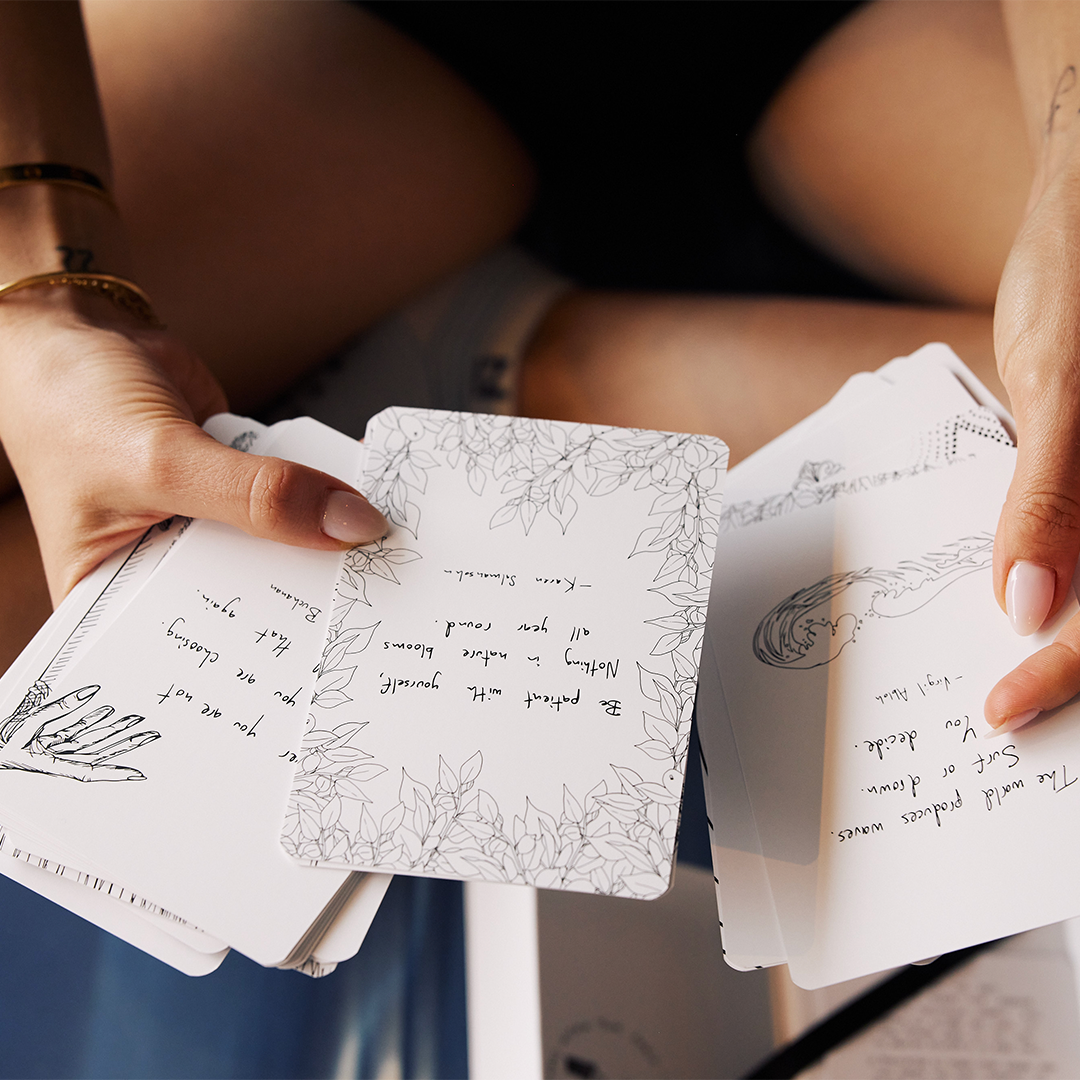 Be patient with yourself,
Nothing in nature blooms
all year round.
—Karen Salmansohn
you are not
you are choosing.
that again.
Buchanan
The world produces waves.
Surf or drown.
You decide.
—Virgil Abloh
77